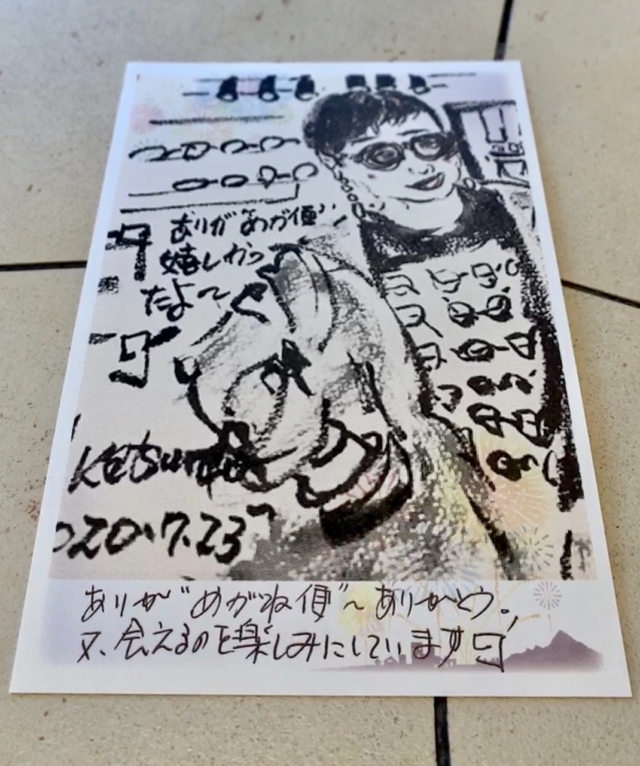 ありが"めが便"
嬉しかっ
たよ〜
Katsumi
2020.7.23
ありが"めがね便〜ありがとう。
又、会えるのを楽しみにしています